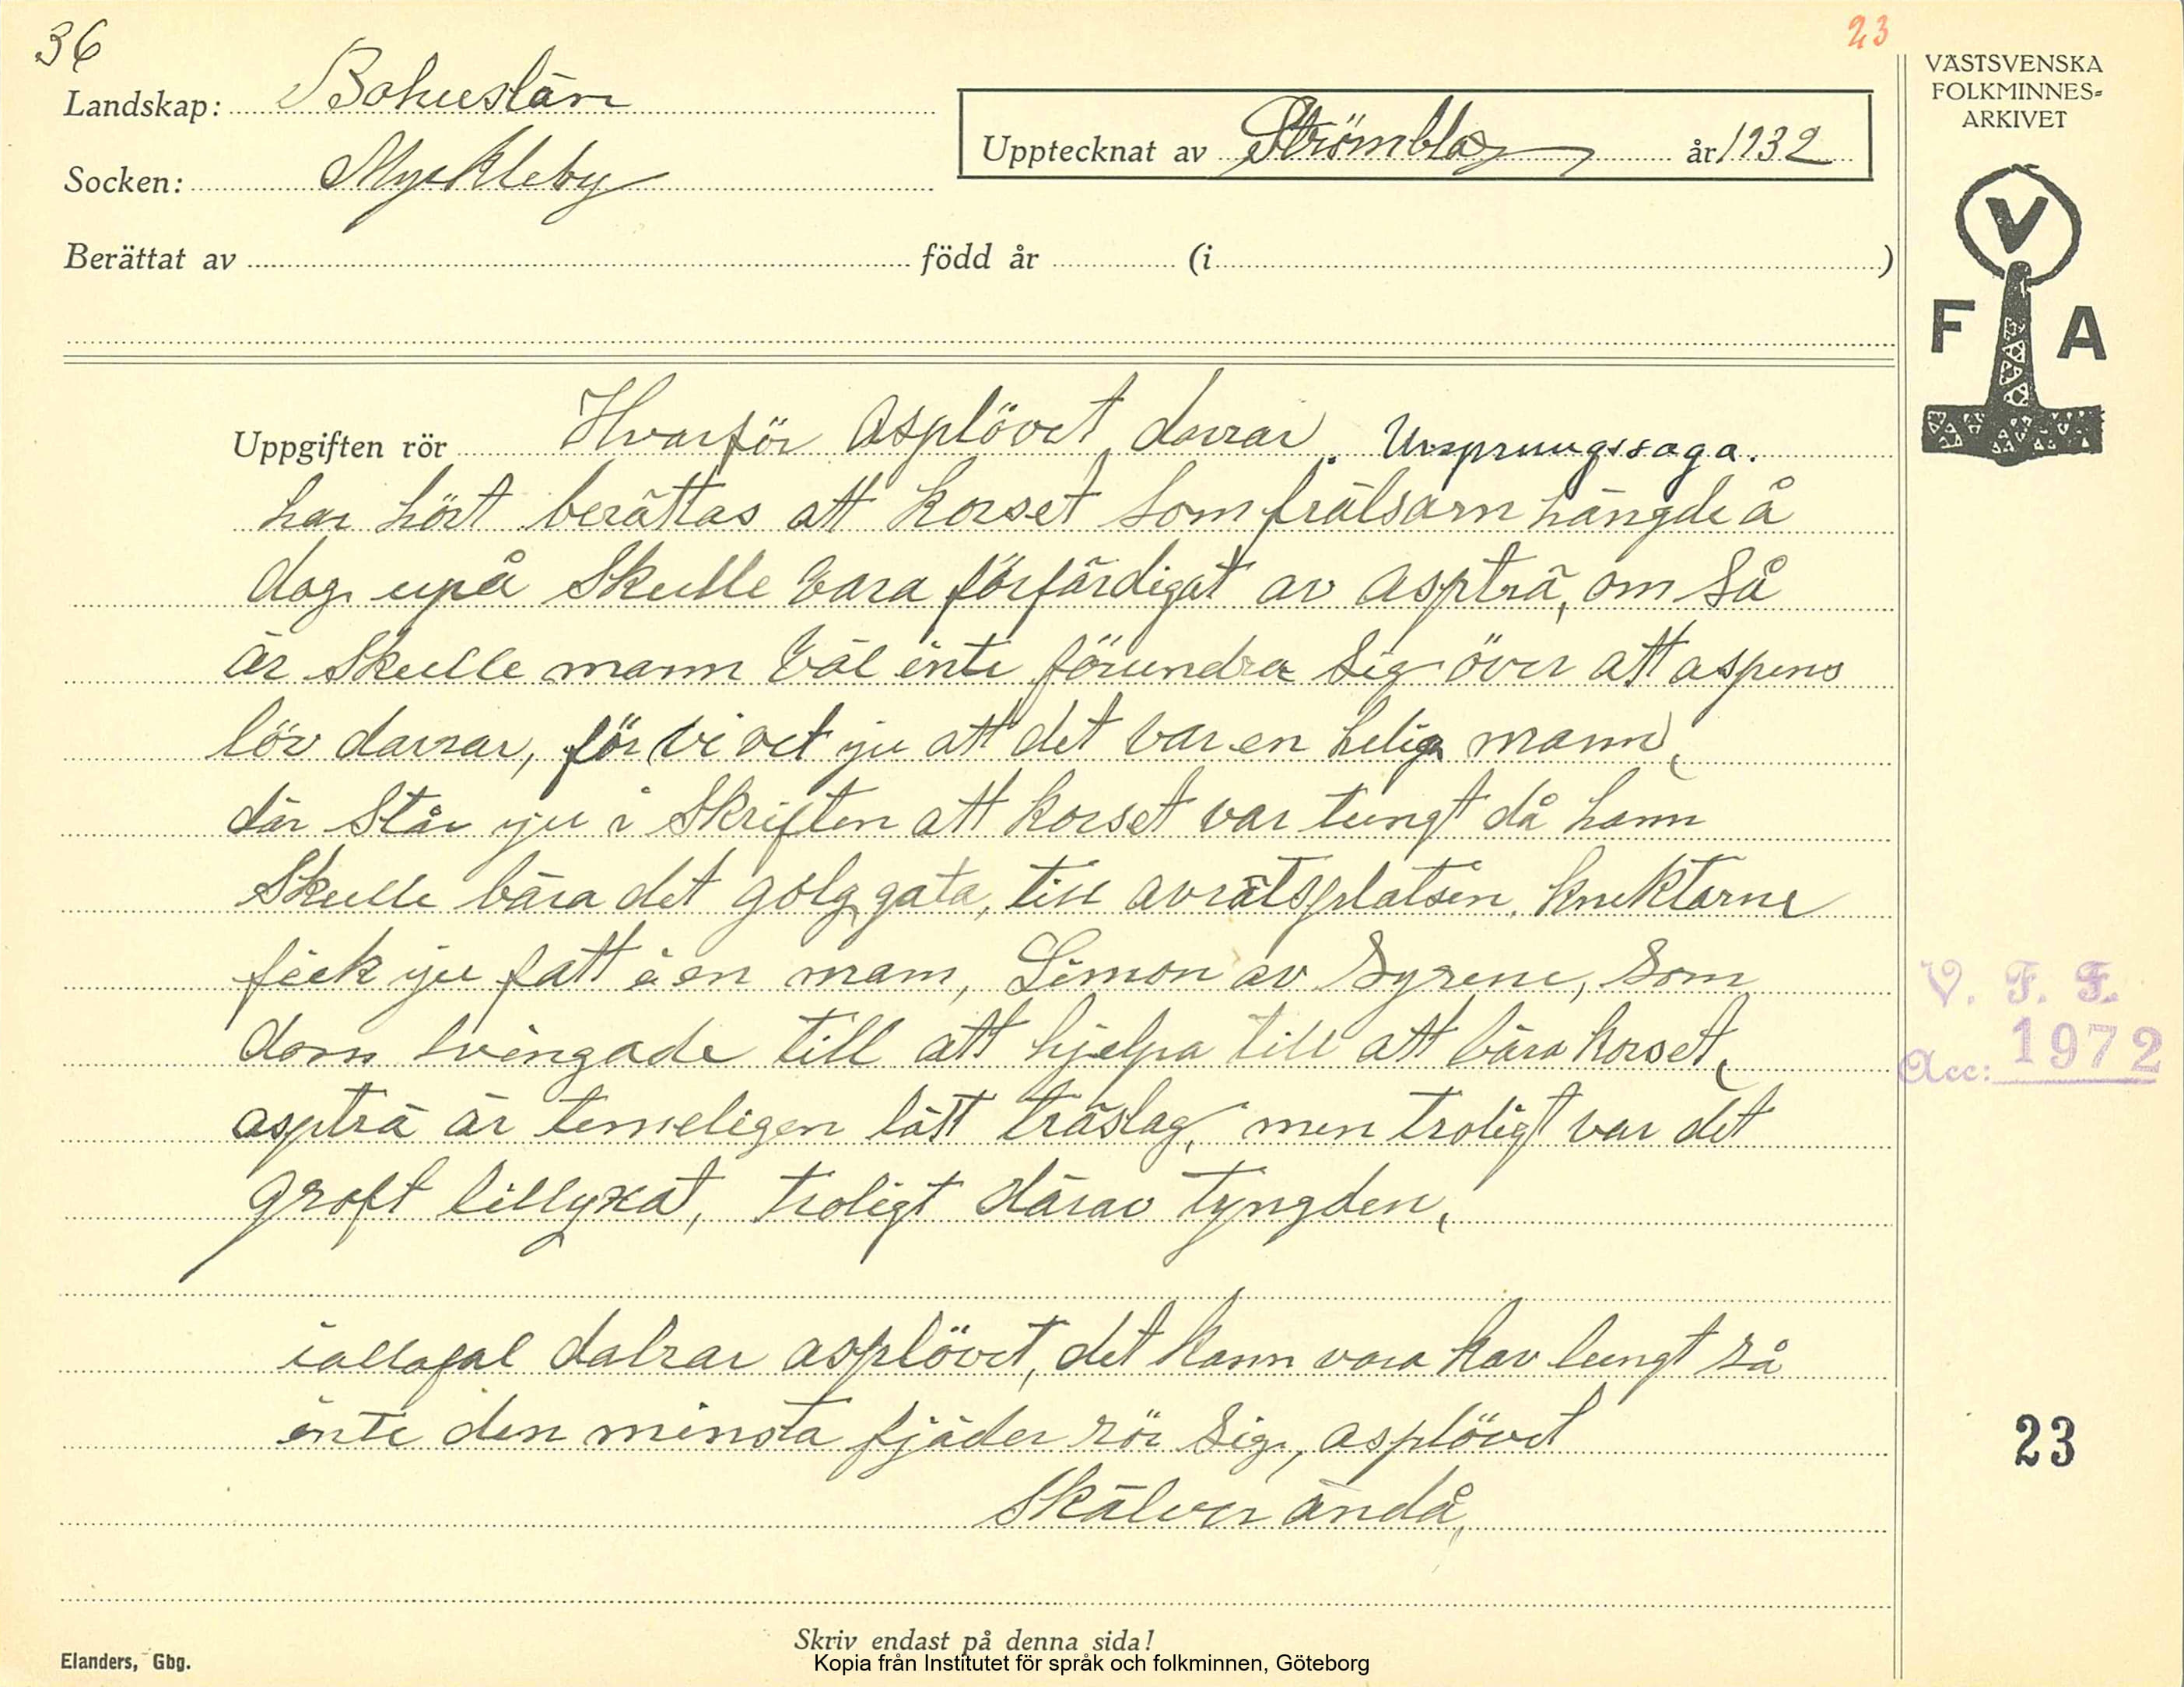 36
23
Landskap: Bohuslän
Socken: Myckleby
Upptecknat av Strömblad år 1932
Berättat av född år (i )
VÄSTSVENSKA
FOLKMINNES-
ARKIVET
V
F A
Uppgiften rör Hvarför Asplövet darrar. Ursprungssaga.
har hört berättas att korset som frälsarn hängde å
dog upå skulle vara förfärdigat av aspträ, om så
är skulle mann väl inte förundra sig över att aspens
löv darrar, för vi vet ju att det var en helig mann,
där står ju i skriften att korset var tungt då hann
skulle bära det golggata, till avrätsplatsen. knektarne
feck ju fatt i en mann, Simon av Syrene, som
dom tvingade till att hjelpa till att bära korset,
aspträ är temeligen lätt träslag, men troligt var det
groft tillyxat, troligt därav tyngden,
iallafal dalrar asplövet, det kann vara kav lungt så
inte den minsta fjäder rör sig, asplövet
skälver ändå,
V. F. F.
Acc: 1972
23
Skriv endast på denna sida!
Elanders, Gbg.
Kopia från Institutet för språk och folkminnen, Göteborg